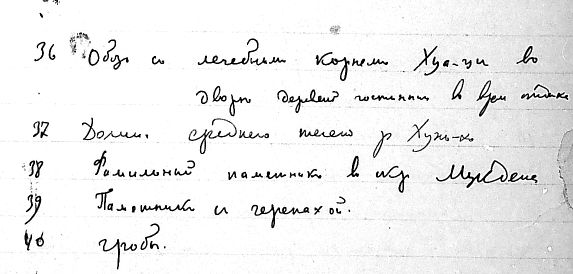 36 Обоз с лечебным корнем Хуа-ци во
дворе деревен гостиниц в врем отдыха
37 Долин. среднего течен р Хунь-хэ
38 Фамильный памятник в окр Мукдена
39 Памятник с черепахой.
40 гробы.